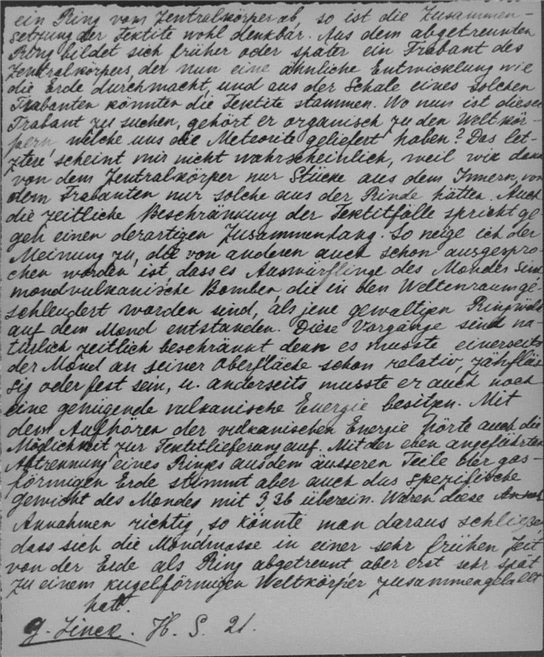 ein Ring vom Zentralkörper ab, so ist die Zusammen-
setzung der Tektite wohl denkbar. Aus dem abgetrennten
Ring bildet sich früher oder später ein Trabant des
Zentralkörpers, der nun eine ähnliche Entwicklung wie
die Erde durchmacht, und aus der Schale eines solchen
Trabanten könnten die Tektite stammen. Wo nun ist dieser
Trabant zu suchen, gehört er organisch zu den Weltkör-
pern, welche uns die Meteorite geliefert haben? Das letz-
tere scheint mir nicht wahrscheinlich, weil wir dann
von dem Zentralkörper nur Stücke aus dem Innern, von
dem Trabanten nur solche aus der Rinde hätten. Auch
die zeitliche Beschränkung der Tektitfälle spricht ge-
gen einen derartigen Zusammenhang. So neige ich der
Meinung zu, die von anderen auch schon ausgespro-
chen worden ist, dass es Auswürflinge des Mondes sind
mondvulkanische Bomben, die in den Weltenraum ge-
schleudert worden sind, als jene gewaltigen Ringwälle
auf dem Mond entstanden. Diese Vorgänge sind na-
türlich zeitlich beschränkt denn es musste einerseits
der Mond an seiner Oberfläche schon relativ, zähflüs-
sig oder fest sein, u. anderseits musste er auch noch
eine genügende vulkanische Energie besitzen. Mit
dem Aufhören der vulkanischen Energie hörte auch die
Möglichkeit zur Tektitlieferung auf. Mit der eben angeführten
Abtrennung eines Ringes aus dem äusseren Teile der gas-
förmigen Erde stimmt aber auch das spezifische
Gewicht des Mondes mit 3 36 überein. Wären diese
Annahmen richtig, so könnte man daraus schliessen
dass sich die Mondmasse in einer sehr frühen Zeit
von der Erde als Ring abgetrennt aber erst sehr spät
zu einem kugelförmigen Weltkörper zusammengeballt
hat.
G. Linck. H. S. 21.